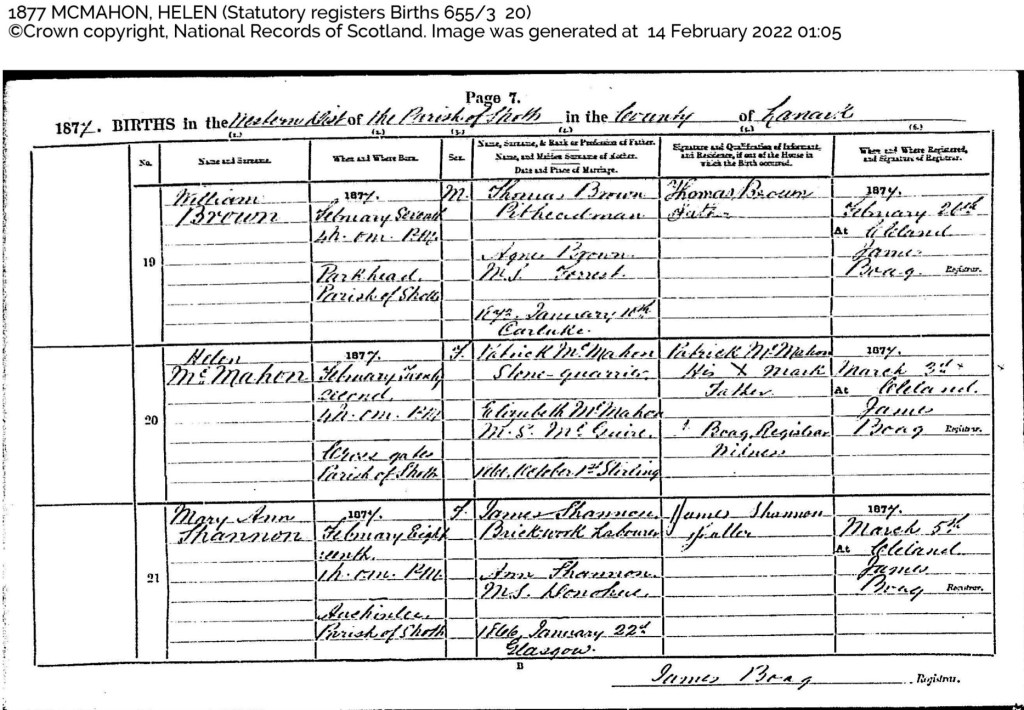 1877 MCMAHON, HELEN (Statutory registers Births 655/3 20)
©Crown copyright, National Records of Scotland. Image was generated at 14 February 2022 01:05
Page 7.
1877. BIRTHS in the Western Dist of the Parish of Shotts in the County of Lanark
(1.) (2.) (3.) (4.) (5.) (6.)
No.
Name and Surname.
When and Where Born.
Sex.
Name, Surname, & Rank or Profession of Father.
Name, and Maiden Surname of Mother.
Date and Place of Marriage.
Signature and Qualification of Informant,
and Residence, if out of the House in
which the Birth occurred.
When and Where Registered,
and Signature of Registrar.
19
William
Brown
1877.
February Seventh
4h. 0m. P.M.
Parkhead,
Parish of Shotts
M.
Thomas Brown
Pitheadman
Agnes Brown
M.S. Forrest
January
Carluke.
Thomas Brown
Father
1877.
February 26th
At Cleland
James
Boag Registrar.
20
Helen
McMahon
1877.
February Twenty
second,
4h. 0m. P.M.
Cross gates
Parish of Shotts
F.
Patrick McMahon
Stone-quarrier
Elizabeth McMahon
M.S. McGuire.
October 1st Stirling
Patrick McMahon
His X Mark
Father.
Boag, Registrar
Witness
1877.
March 3d
At Cleland.
James
Boag Registrar.
21
Mary Ann
Shannon
1877.
February Eigh
teenth.
1h. 0m. P.M.
Auchinlea,
Parish of Shotts
F.
James Shannon
Brick-work Labourer
Ann Shannon.
M.S. Donohue.
1866, January 22d
Glasgow.
James Shannon
Father
1877.
March 5th
At Cleland
James
Boag Registrar.
B
James Boag Registrar.